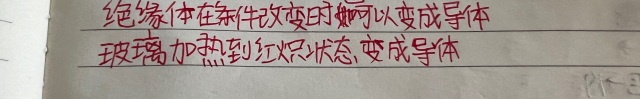 绝缘体在条件改变时可以变成导体
玻璃加热到红炽状态,变成导体